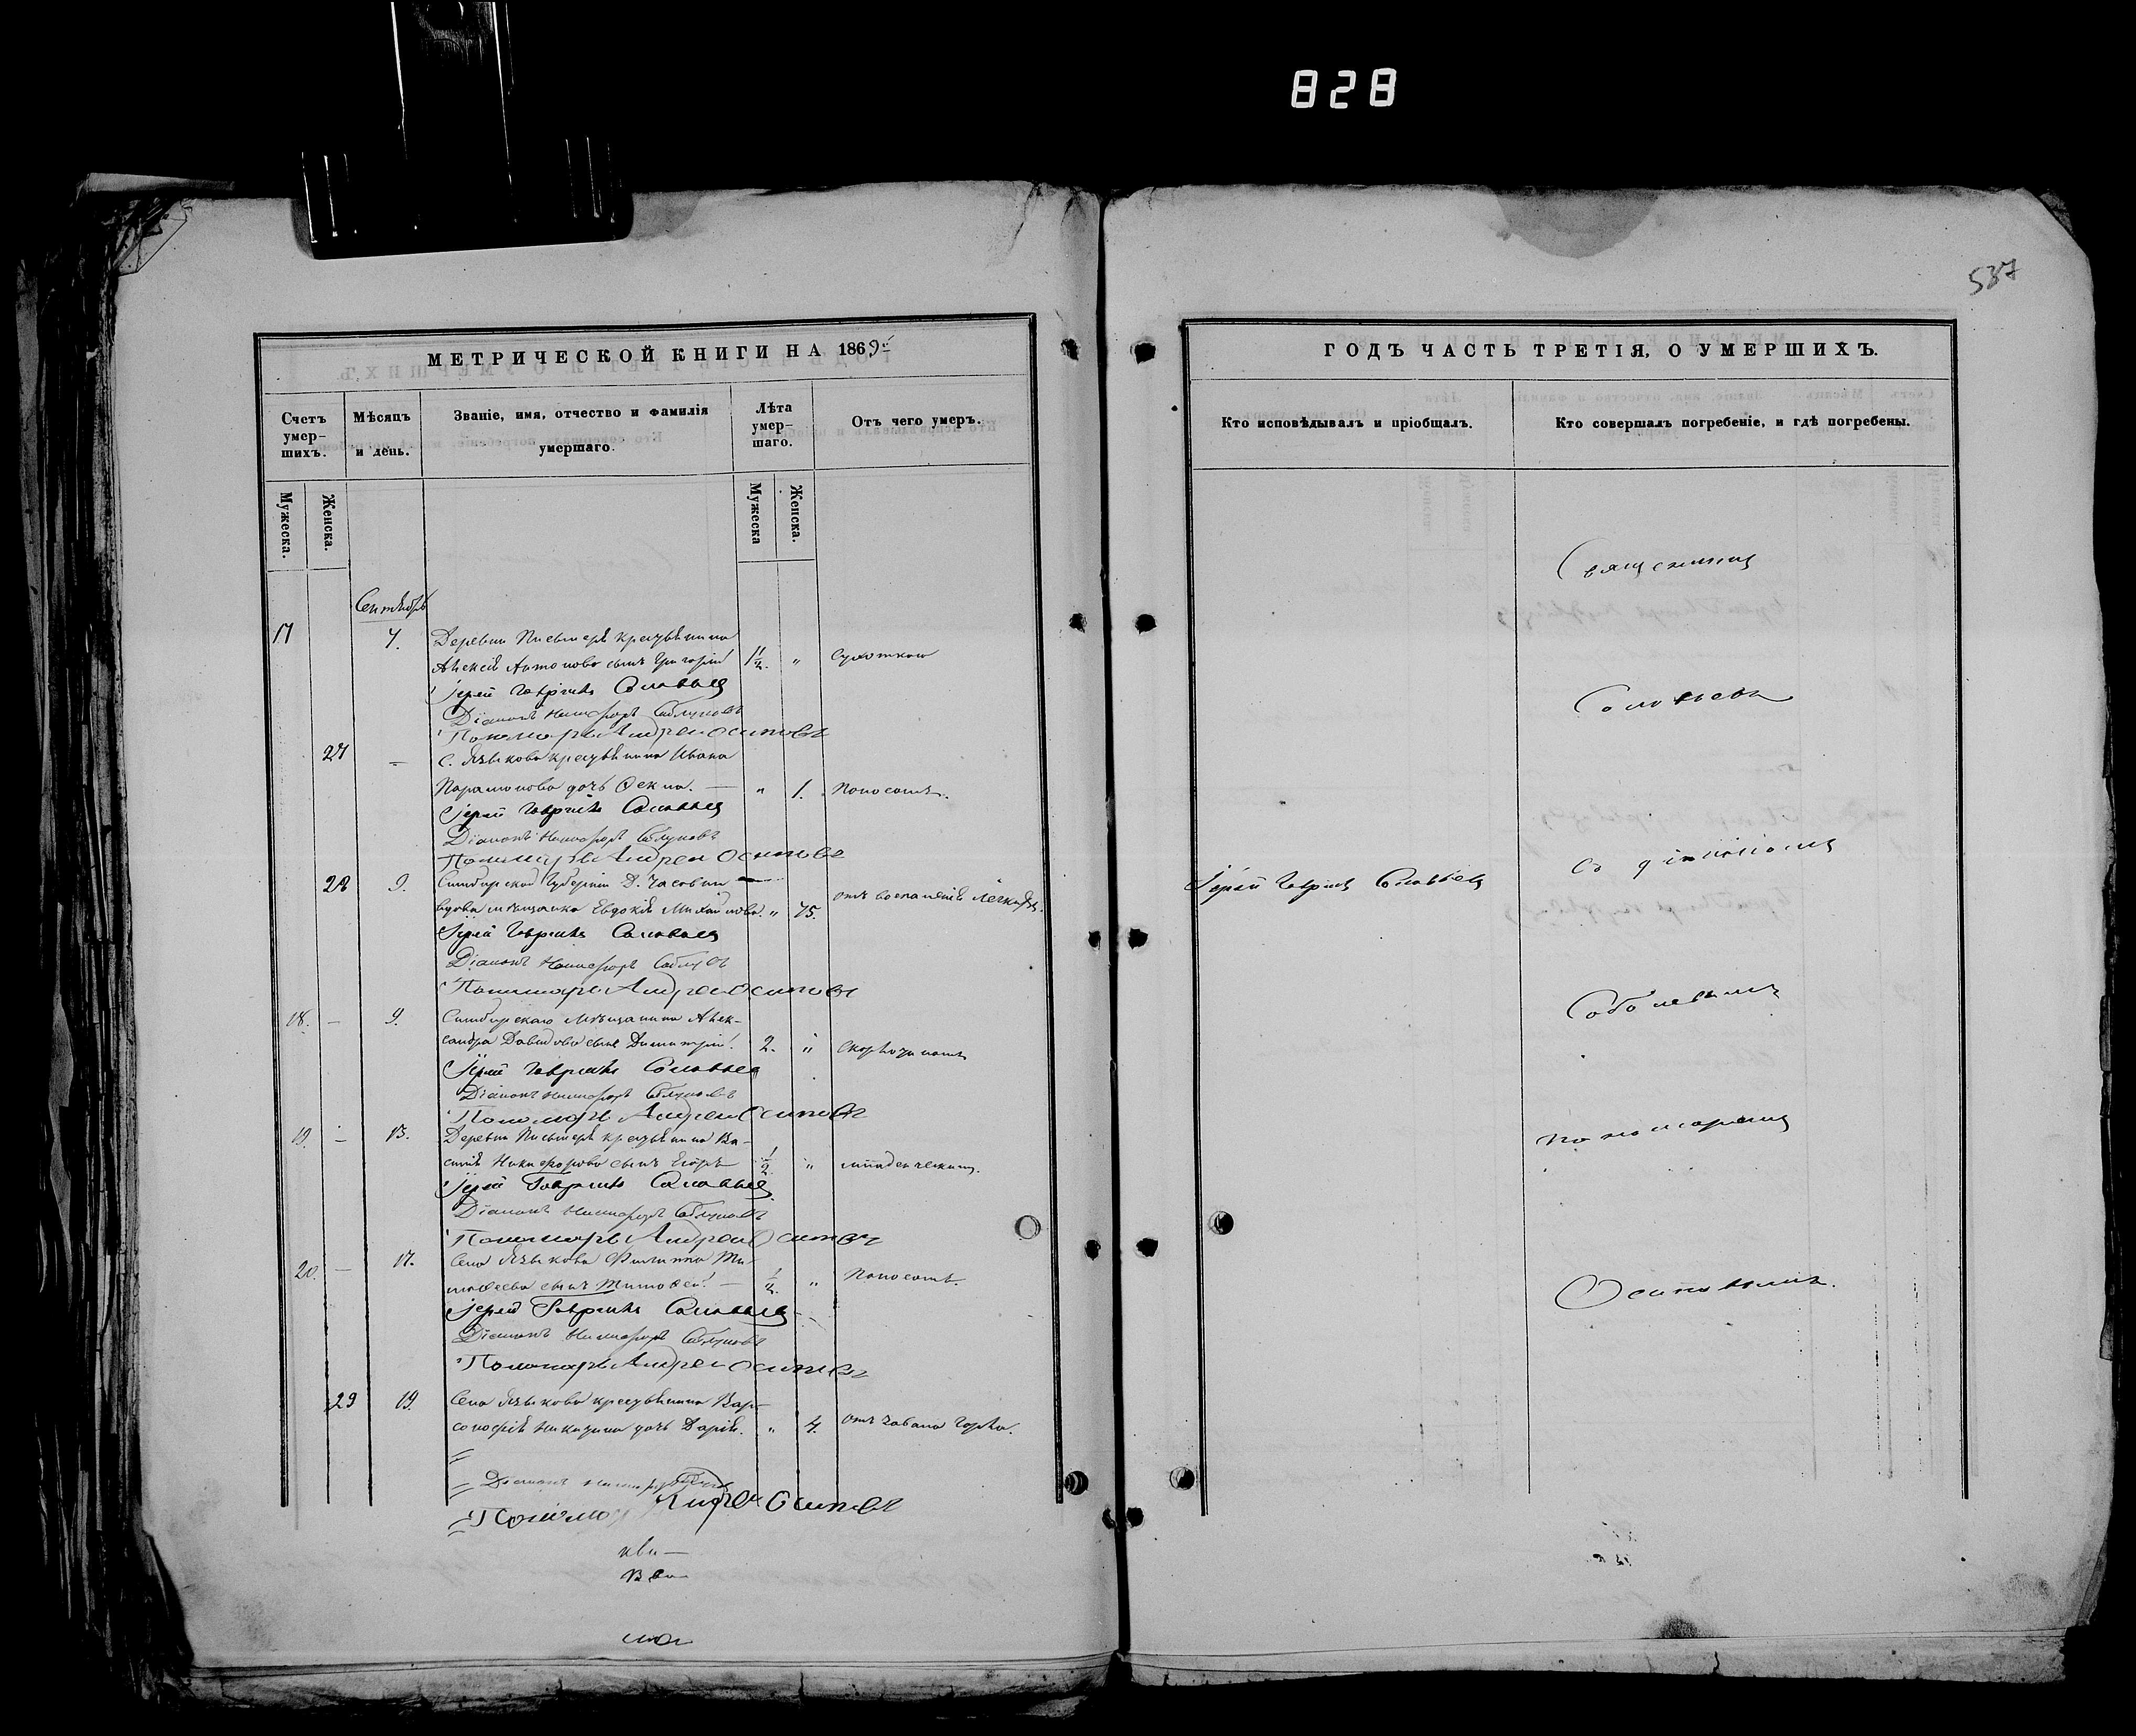 828
587
МЕТРИЧЕСКОЙ КНИГИ НА 1869й
Счетъ умер-шихъ.
Мѣсяцъ и день.
Званіе, имя, отчество и фамилія умершаго.
Лѣта умер-шаго.
Отъ чего умеръ.
Мужеска.
Женска.
Мужеска
Женска.
Сентябрь
17
7.
Деревни Письмерь крестьянина
Алексѣя Антонова сынъ Григорій
1½.
"
Сухоткою
Іерей Гавріилъ Соловьевъ
Діаконъ Никифоръ
Пономарь Андрей Осиповъ
27
–
С. Языкова крестьянина Ивана
Парамонова дочь Ѳекла.
"
1.
Поносомъ.
Іерей Гавріилъ Соловьевъ
Діаконъ Никифоръ
Пономарь Андрей Осиповъ
28
9.
Симбирской Губерніи Д.
вдова мѣщанка Евдокія Михайлова.
"
75.
отъ воспаленія лёгкихъ.
Іерей Гавріилъ Соловьевъ
Діаконъ Никифоръ
Пономарь Андрей Осиповъ
18.
–
9.
Симбирскаго мѣщанина Алек-
сандра Давидова сынъ Димитрій
2.
"
Іерей Гавріилъ Соловьевъ
Діаконъ Никифоръ
Пономарь Андрей Осиповъ
19.
–
13.
Деревни Письмерь крестьянина Ва-
силія Никифорова сынъ Егоръ
½
"
младенческимъ.
Іерей Гавріилъ Соловьевъ
Діаконъ Никифоръ
Пономарь Андрей Осиповъ
20.
–
17.
Села Языкова Филиппа Ти-
моѳеева сынъ Тимоѳей
½.
"
Поносомъ.
Іерей Гавріилъ Соловьевъ
Діаконъ Никифоръ
Пономарь Андрей Осиповъ
29
19.
Села Языкова крестьянина Вар-
сонофія Никитина дочь Дарія.
"
4.
отъ
Діаконъ
Пономарь Андрей Осиповъ
ГОДЪ ЧАСТЬ ТРЕТІЯ, О УМЕРШИХЪ.
Кто исповѣдывалъ и пріобщалъ.
Кто совершалъ погребеніе, и гдѣ погребены.
Священникъ
Соловьевъ
Іерей Гавріилъ Соловьевъ
съ діакономъ
пономаремъ
Осиповымъ.